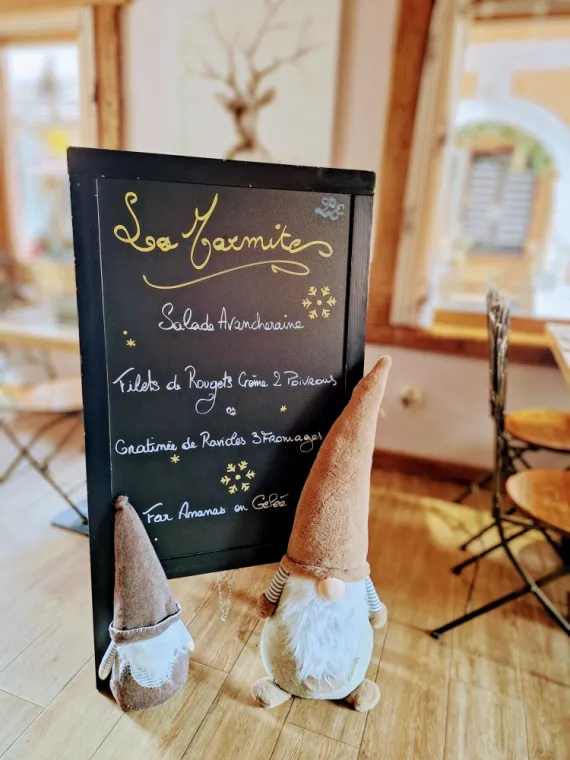 La Marmite
Salade Avancheraine
Filets de Rougets Crème 2 Poivrons
et
Gratinée de Ravioles 3 Fromages
Far Ananas ou Gelée